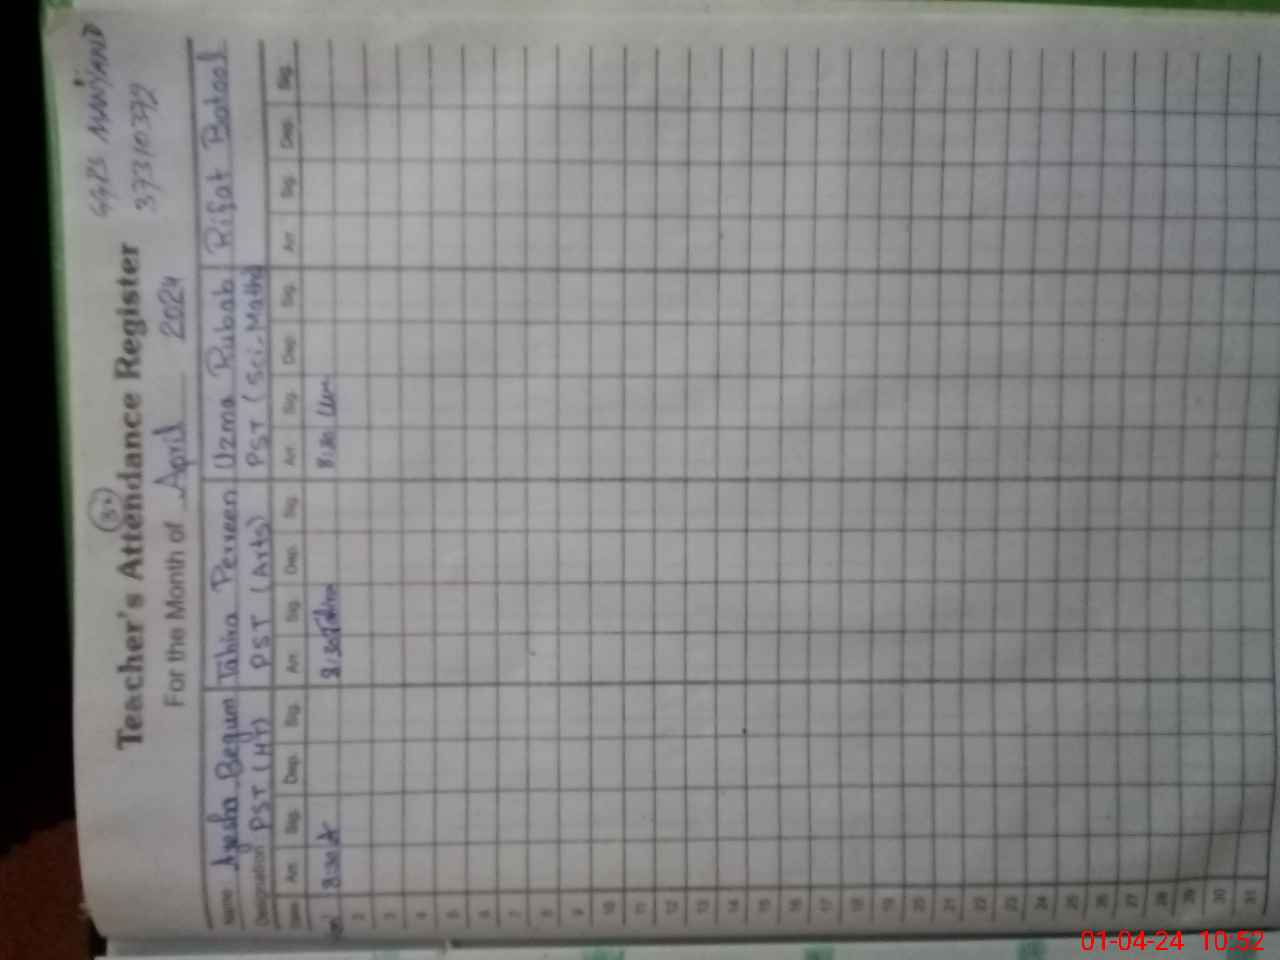 GGPS MANJAND
37310372
Teacher's Attendance Register
For the Month of April 2024
Name Ayesha Begum Tahira Perveen Uzma Rubab Rifat Batool
Designation PST (HT) PST (Arts) PST (Sci-Math)
Date Arr. Sig. Dep. Sig. Arr. Sig. Dep. Sig. Arr. Sig. Dep. Sig. Arr. Sig. Dep. Sig.
8:30 8:30 Tahira 8:30
2
3
4
5
6
7
8
9
10
11
12
13
14
15
16
17
18
19
20
21
22
23
24
25
26
27
28
29
30
31
01-04-24 10:52